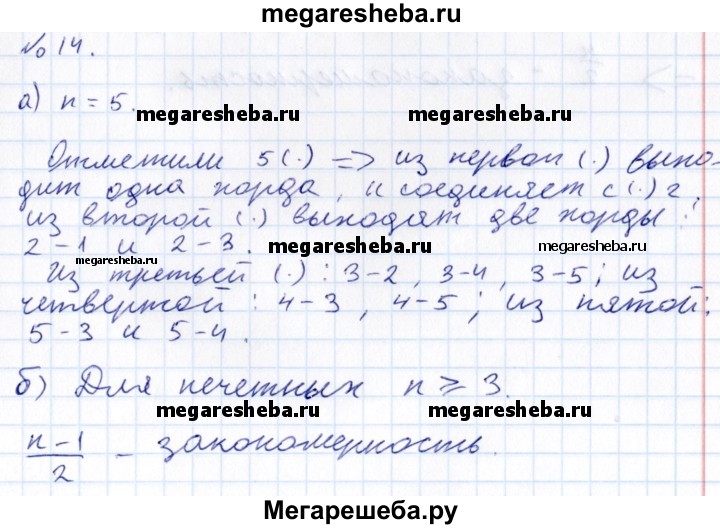 megaresheba.ru
№ 14.
а) n = 5.
megaresheba.ru
megaresheba.ru
Отметили 5 (·) => из первой (·) выхо-
дит одна хорда, и соединяет с (·) 2,
из второй (·) выходят две хорды:
2-1 и 2-3.
megaresheba.ru
megaresheba.ru
megaresheba.ru
Из третьей (·): 3-2, 3-4, 3-5; из
четвертой: 4-3, 4-5; из пятой:
5-3 и 5-4.
б) Для нечетных n ⩾ 3.
megaresheba.ru
megaresheba.ru
n-1/2 - закономерность.
Мегарешеба.ру